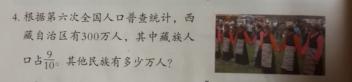 4. 根据第六次全国人口普查统计，西
藏自治区有300万人，其中藏族人
口占9/10。其他民族有多少万人？